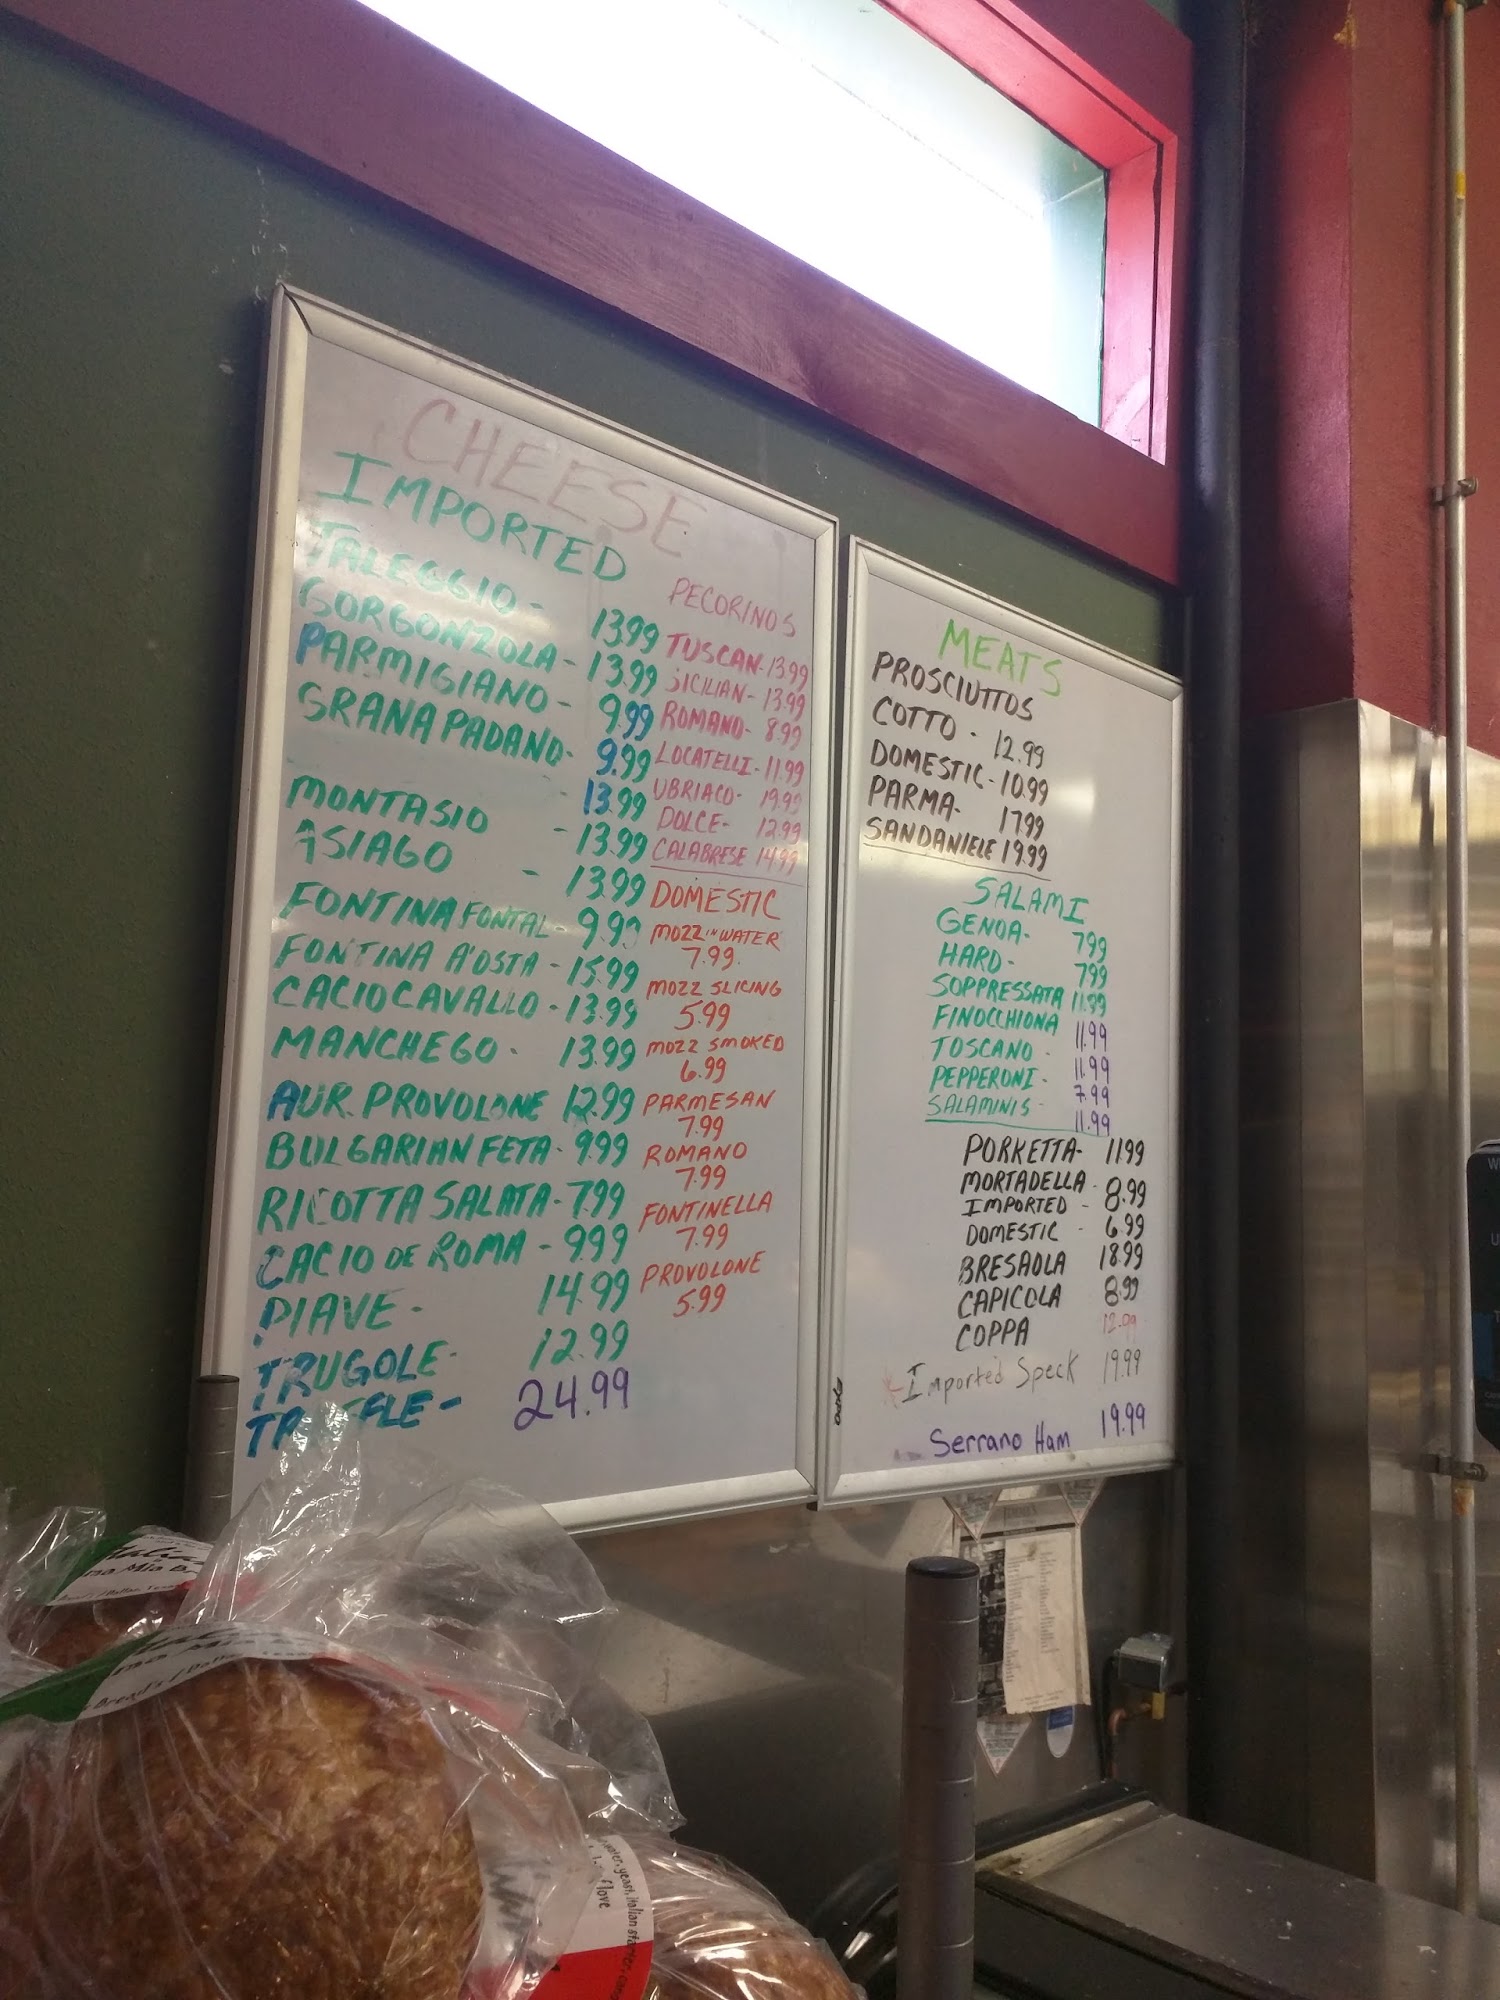 CHEESE
IMPORTED
TALEGGIO - 13.99
GORGONZOLA - 13.99
PARMIGIANO - 9.99
GRANA PADANO - 9.99
- 13.99
MONTASIO - 13.99
ASIAGO - 13.99
FONTINA FONTAL - 9.99
FONTINA A'OSTA - 15.99
CACIOCAVALLO - 13.99
MANCHEGO - 13.99
AUR. PROVOLONE 12.99
BULGARIAN FETA - 9.99
RICOTTA SALATA - 7.99
CACIO DE ROMA - 9.99
PIAVE - 14.99
TRUGOLE - 12.99
24.99
PECORINOS
TUSCAN - 13.99
SICILIAN - 13.99
ROMANO - 8.99
LOCATELLI - 11.99
UBRIACO - 19.99
DOLCE - 12.99
CALABRESE 14.99
DOMESTIC
MOZZ IN WATER
7.99
MOZZ SLICING
5.99
MOZZ SMOKED
6.99
PARMESAN
7.99
ROMANO
7.99
FONTINELLA
7.99
PROVOLONE
5.99
MEATS
PROSCIUTTOS
COTTO - 12.99
DOMESTIC - 10.99
PARMA - 17.99
SANDANIELE 19.99
SALAMI
GENOA - 7.99
HARD - 7.99
SOPPRESSATA 11.99
FINOCCHIONA 11.99
TOSCANO - 11.99
PEPPERONI - 7.99
SALAMINIS - 11.99
PORKETTA - 11.99
MORTADELLA -
IMPORTED - 8.99
DOMESTIC - 6.99
BRESAOLA 18.99
CAPICOLA 8.99
COPPA 12.99
Imported Speck 19.99
Serrano Ham 19.99